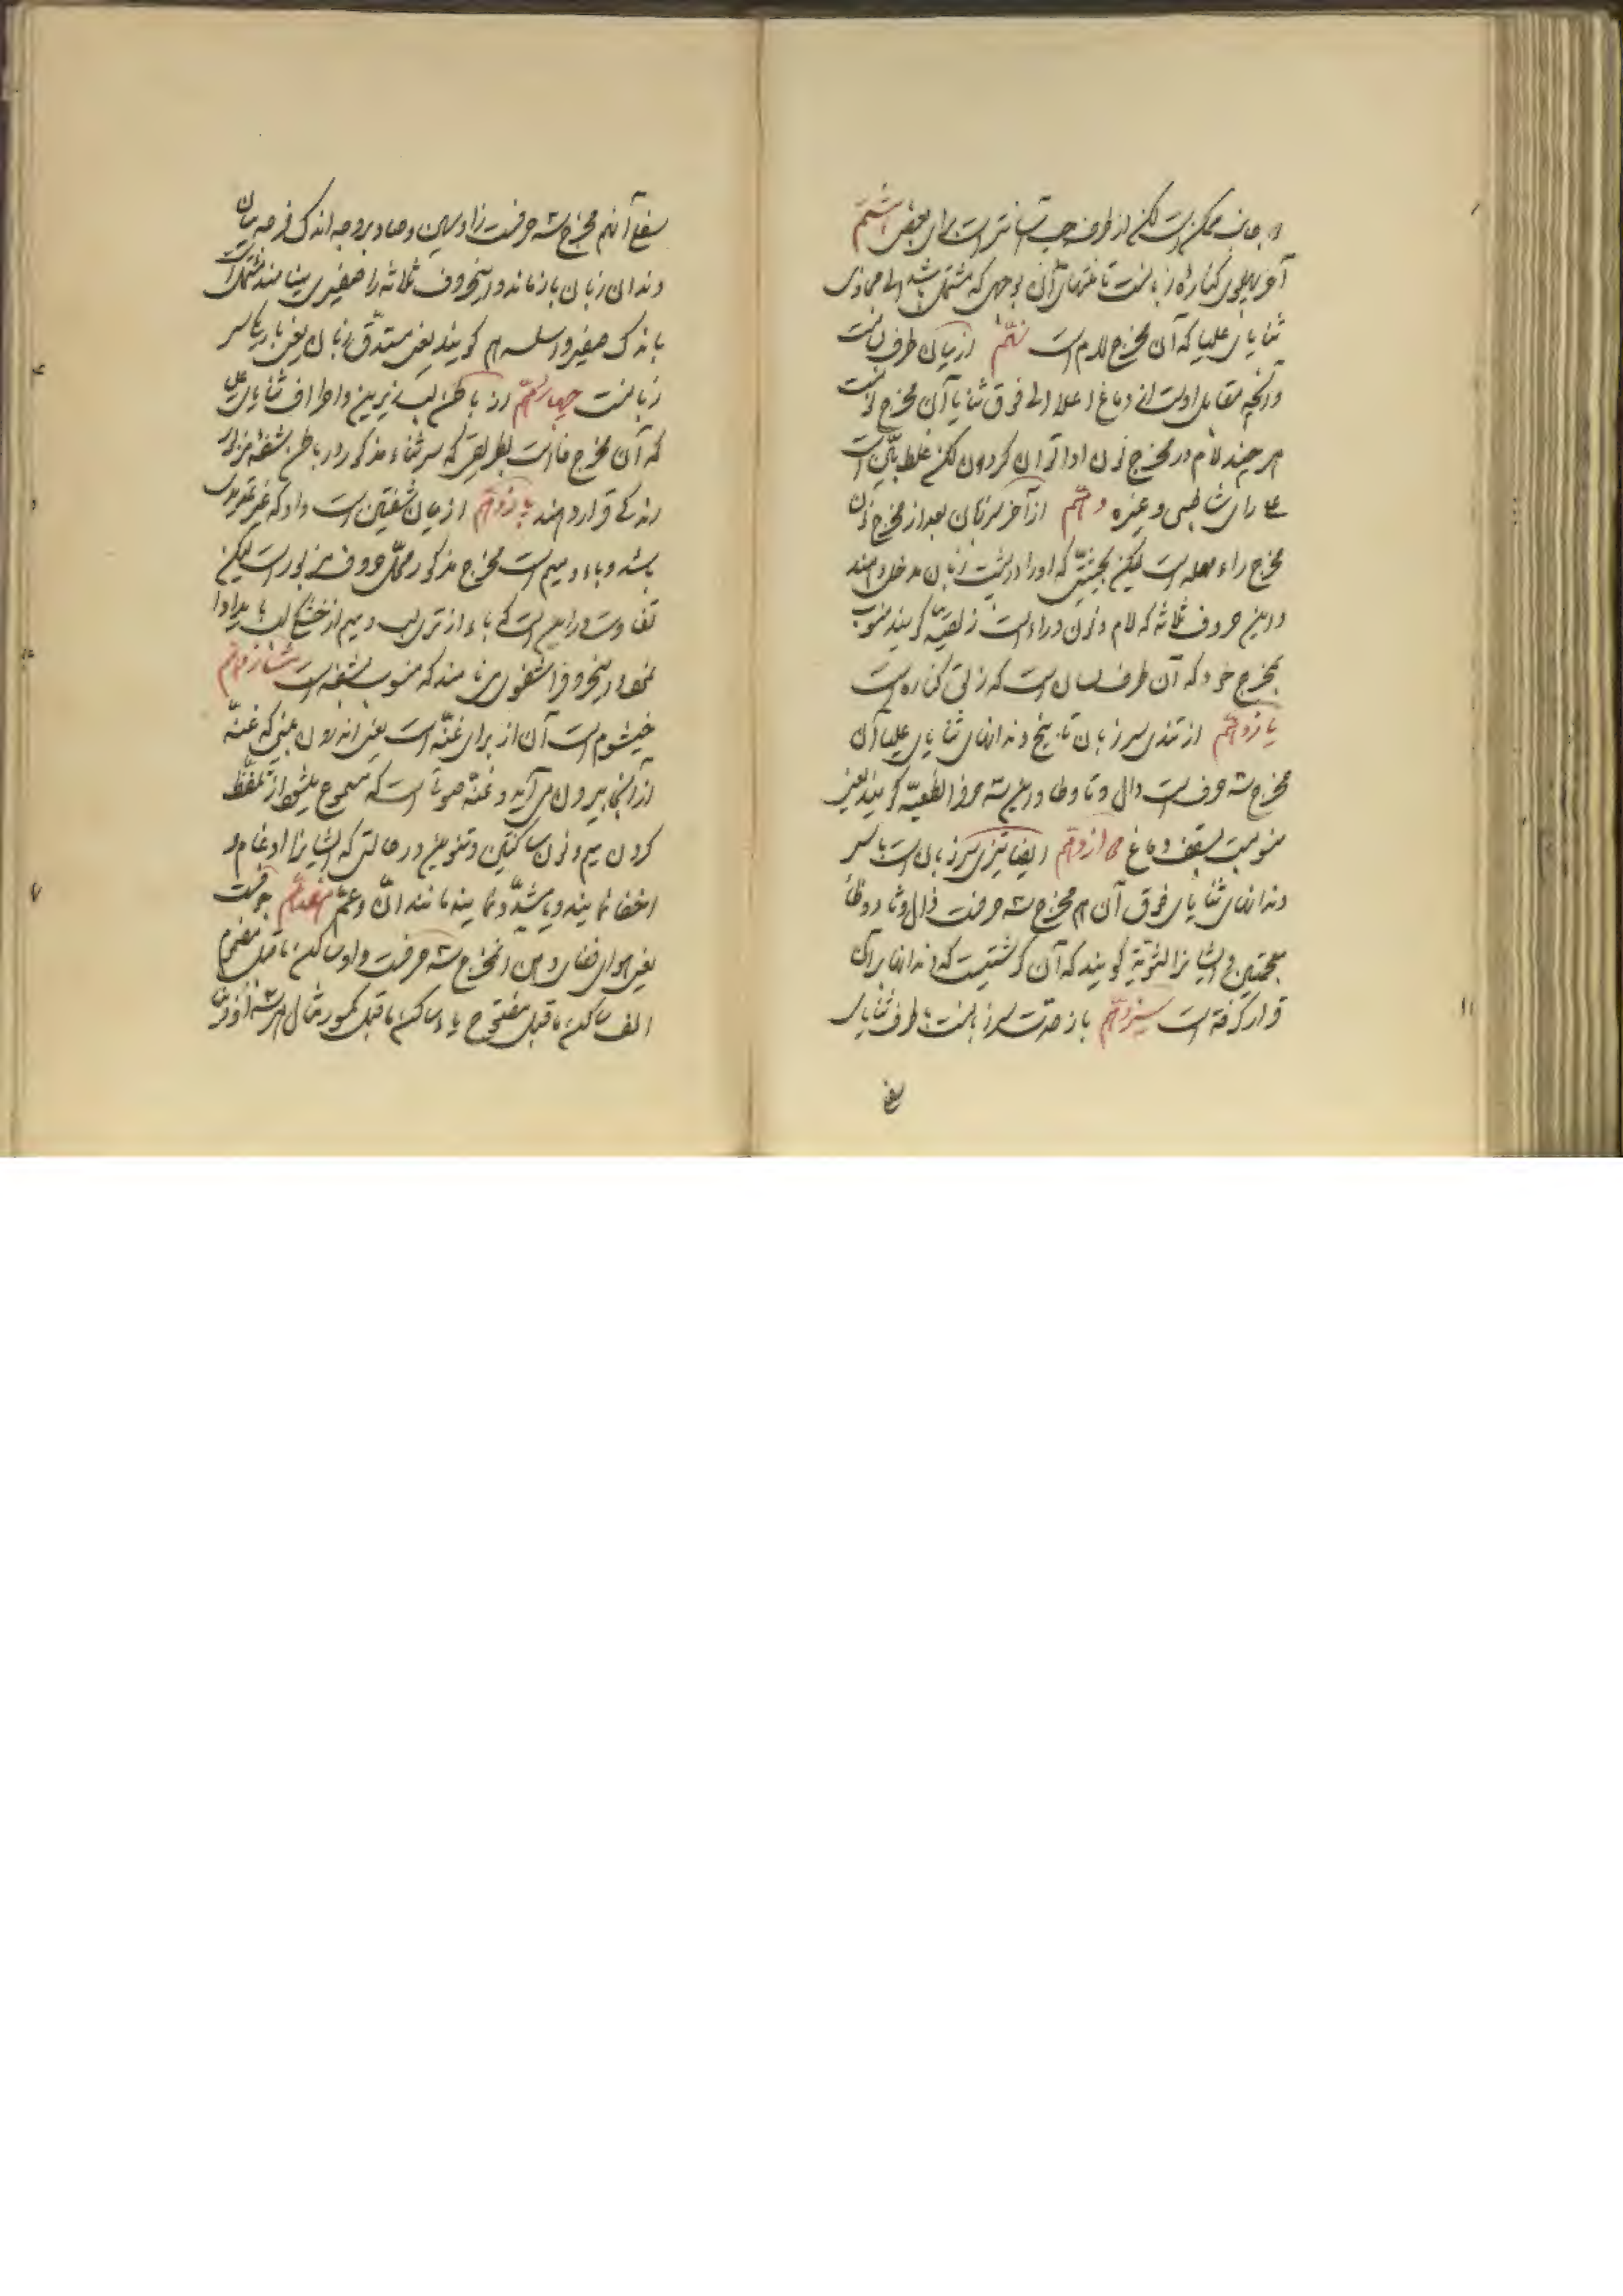 جانب ممکن است لکن از طرف چپ آسانتر است برای بعضی هشتم
آخر پهلوی کناره زبانست تا منتهای آن بوجهی که مشتمل باشد الی محاذی
ثنایای علیا که آن مخرج لام است نهم از میان طرف زبانست
و آنچه مقابل اوست از دماغ اعلا الی فوق ثنایا آن مخرج نونست
هر چند لام در مخرج نون ادا توان کردن لکن غلط است
رای شاطبی و غیره دهم از آخر سر زبان بعد از مخرج نون
مخرج راء مهمله است لیکن بحیثیتی که او را در پشت زبان مدخل دهند
و این حروف ثلاثه که لام و نون و راء است ذلقیه گویند منسوب
بمخرج خود که آن طرف لسان است که ذلق کناره است
یازدهم از تندی سر زبان تا بیخ دندانهای ثنایای علیا آن
مخرج سه حرف است دال و تا و طا و این سه حرف را نطعیه گویند یعنی
منسوبست بسقف دماغ دوازدهم ایضا تیزی سر زبان است با سر
دندانهای ثنایای فوق آن هم مخرج سه حرفست ذال و ثا و ظا
معجمتین و ایشانرا لثویه گویند که آن گوشتیست که دندانها بر آن
قرار گرفته است سیزدهم باز حدت سر زبانست با طرف ثنایای
سفلی
سفلی آنهم مخرج سه حرفست زا و سین و صاد بر وجه اندک فرجه میان
دندان و زبان باز ماند و این حروف ثلاثه را صفیری مینامند
باندک صفیر و اسلیه هم گویند یعنی مستدق زبان یعنی باریک سر
زبانست چهاردهم از باطن لب زیرین و اطراف ثنایای علیا
که آن مخرج فا است بطریقی که سر ثناء مذکور در باطن شفه
اندکی قرار دهند پانزدهم از میان شفتین است واو که غیر
باشد و باء و میم است مخرج مذکور محل حروف مزبور است لیکن
تفاوت در این است که باء از تری لب و میم از خشکی لب باید ادا
نمود و این حروف را شفوی نامند که منسوب بشفه است شانزدهم
خیشوم است آن از برای غنه است یعنی اندرون بینی که غنه
از آنجا بیرون می آید و غنه صوتی است که مسموع میشود از تلفظ
کردن میم و نون ساکنین و تنوین در حالتی که ایشانرا ادغام و
اخفا نمایند و یا مشدد نمایند مانند ان و عم هفدهم جوفست
یعنی هوای فضای دهن و مخرج سه حرفست واو ساکن ماقبل مضموم
الف ساکن ماقبل مفتوح یاء ساکن ماقبل مکسور مثال هر سه